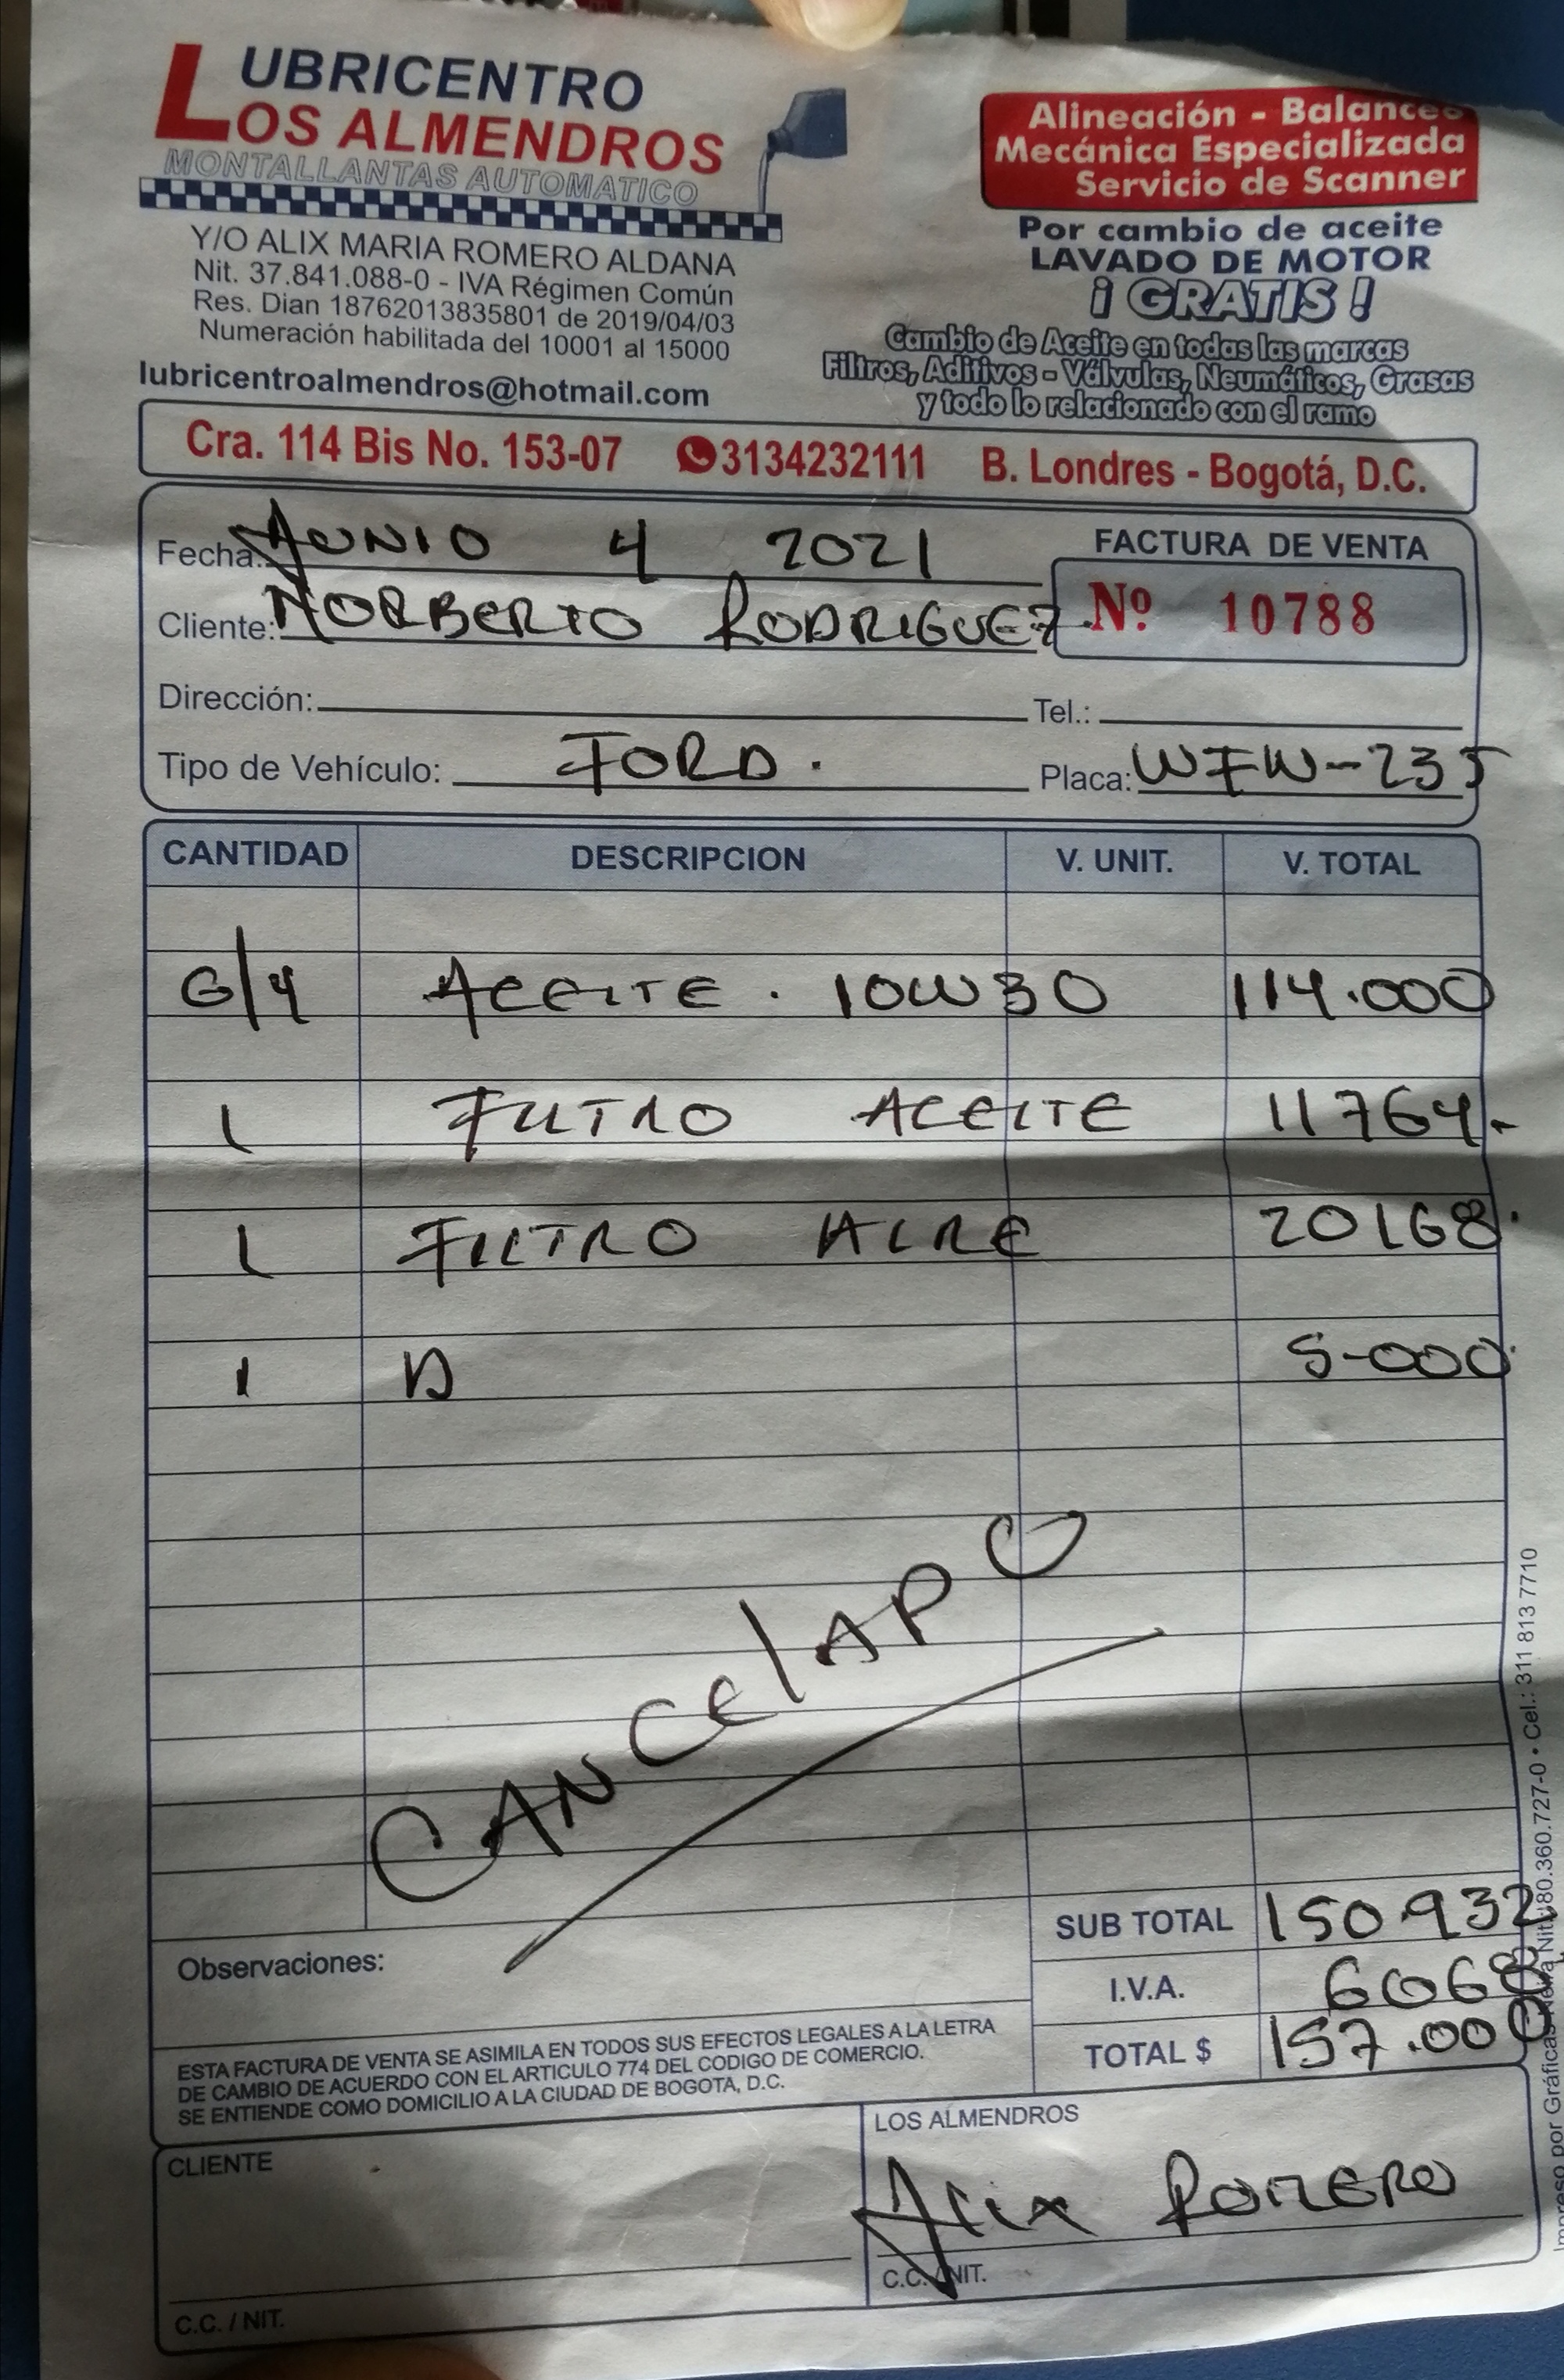 LUBRICENTRO
LOS ALMENDROS
MONTALLANTAS AUTOMATICO
Y/O ALIX MARIA ROMERO ALDANA
Nit. 37.841.088-0 - IVA Régimen Común
Res. Dian 18762013835801 de 2019/04/03
Numeración habilitada del 10001 al 15000
lubricentroalmendros@hotmail.com
Alineación - Balanceo
Mecánica Especializada
Servicio de Scanner
Por cambio de aceite
LAVADO DE MOTOR
¡ GRATIS !
Cambio de Aceite en todas las marcas
Filtros, Aditivos - Válvulas, Neumáticos, Grasas
y todo lo relacionado con el ramo
Cra. 114 Bis No. 153-07 3134232111 B. Londres - Bogotá, D.C.
Fecha: JUNIO 4 2021
FACTURA DE VENTA
Cliente: NORBERTO RODRIGUEZ
Nº 10788
Dirección: Tel.:
Tipo de Vehículo: FORD. Placa: WFW-235
CANTIDAD DESCRIPCION V. UNIT. V. TOTAL
G/4 ACEITE. 10W30 114.000
1 FILTRO ACEITE 11764.
1 FILTRO AIRE 20168.
1 5-000
CANCELADO
SUB TOTAL 150.932
Observaciones:
I.V.A. 6068
TOTAL $ 157.000
ESTA FACTURA DE VENTA SE ASIMILA EN TODOS SUS EFECTOS LEGALES A LA LETRA
DE CAMBIO DE ACUERDO CON EL ARTICULO 774 DEL CODIGO DE COMERCIO.
SE ENTIENDE COMO DOMICILIO A LA CIUDAD DE BOGOTA, D.C.
CLIENTE
C.C. / NIT.
LOS ALMENDROS
Alix ROMERO
C.C. / NIT.
Impreso por Gráficas Nit. 80.360.727-0 • Cel.: 311 813 7710